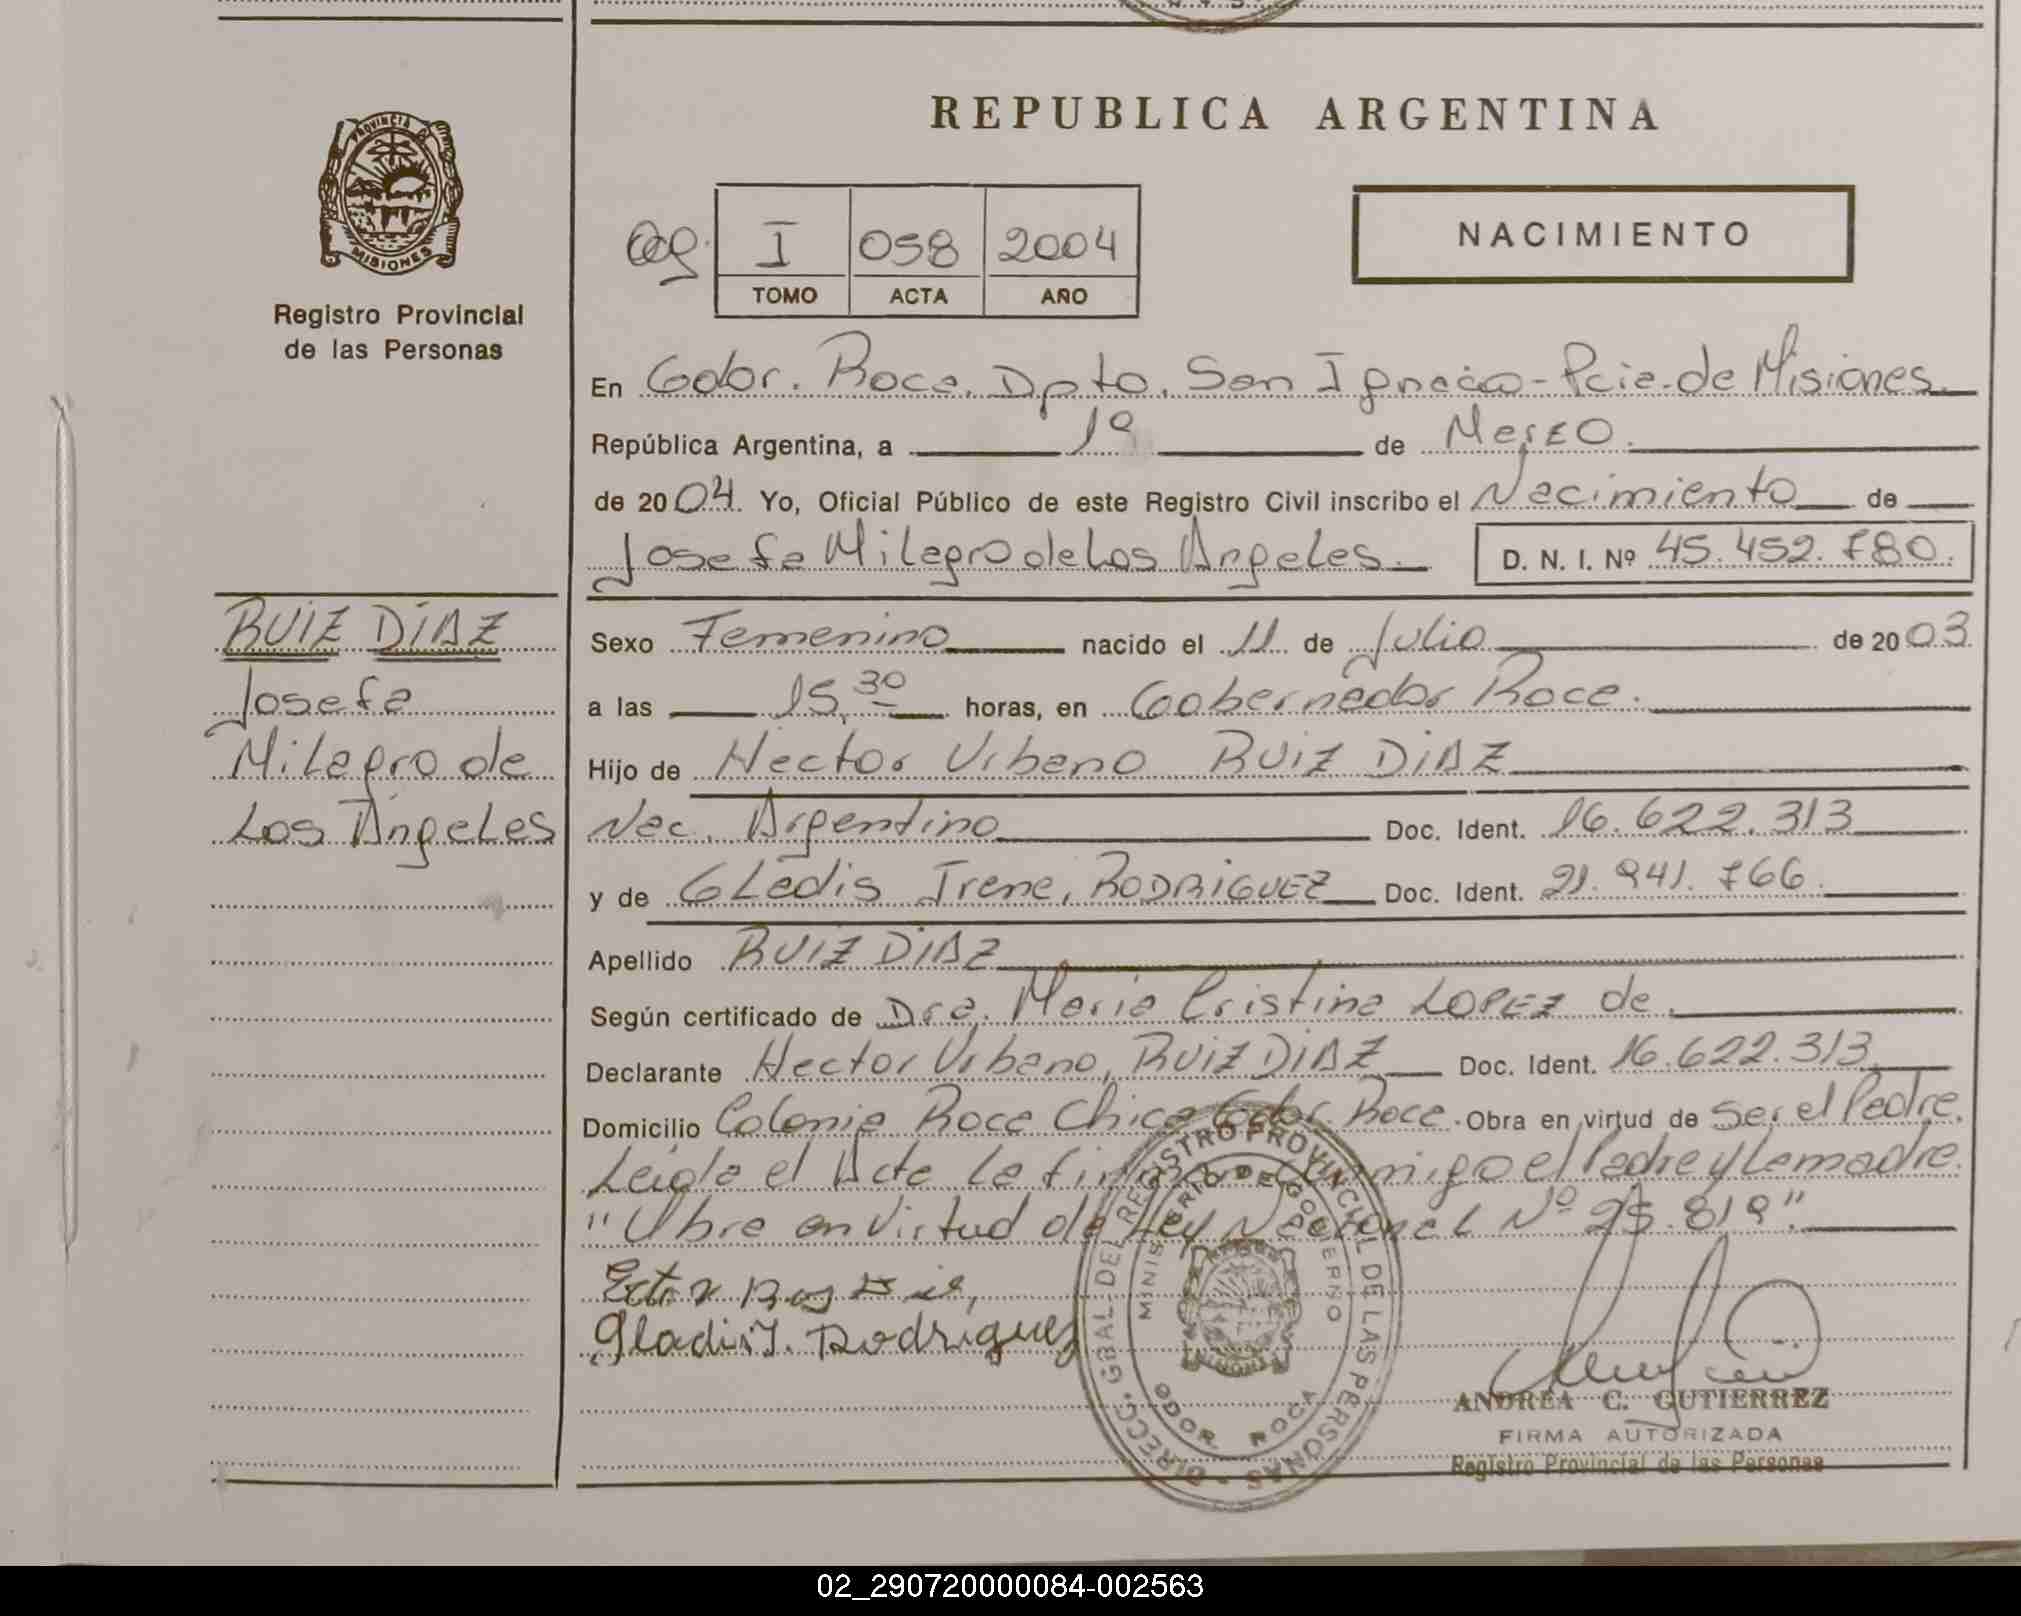 REPUBLICA ARGENTINA
PROVINCIA DE
MISIONES
Registro Provincial
de las Personas
I 058 2004
TOMO ACTA AÑO
NACIMIENTO
En Gdor. Roca. Dpto. San Ignacio - Pcia. de Misiones.
República Argentina, a 1º de Marzo.
de 2004. Yo, Oficial Público de este Registro Civil inscribo el Nacimiento de
Josefa Milagro de Los Angeles. D. N. I. Nº 45.452.780.
RUIZ DIAZ
Josefa
Milagro de
Los Angeles
Sexo Femenino nacido el 11 de Julio de 2003.
a las 15,30 horas, en Gobernador Roca.
Hijo de Hector Urbano RUIZ DIAZ
Nac. Argentino Doc. Ident. 16.622.313
y de GLadis Irene, RODRIGUEZ Doc. Ident. 21.941.766.
Apellido RUIZ DIAZ
Según certificado de Dra. Maria Cristina LOPEZ de.
Declarante Hector Urbano, RUIZ DIAZ Doc. Ident. 16.622.313
Domicilio Colonia Roca Chica Gdor. Roca. Obra en virtud de Ser el Padre.
Leida el Acta La firman conmigo el Padre y La madre.
"Obra en Virtud de Ley Nacional Nº 25.819".
Gladis I. Rodriguez
DIRECC. GRAL. DEL REGISTRO PROVINCIAL DE LAS PERSONAS
MINISTERIO DE GOBIERNO
GDOR. ROCA
ANDREA C. GUTIERREZ
FIRMA AUTORIZADA
Registro Provincial de las Personas
02_290720000084-002563